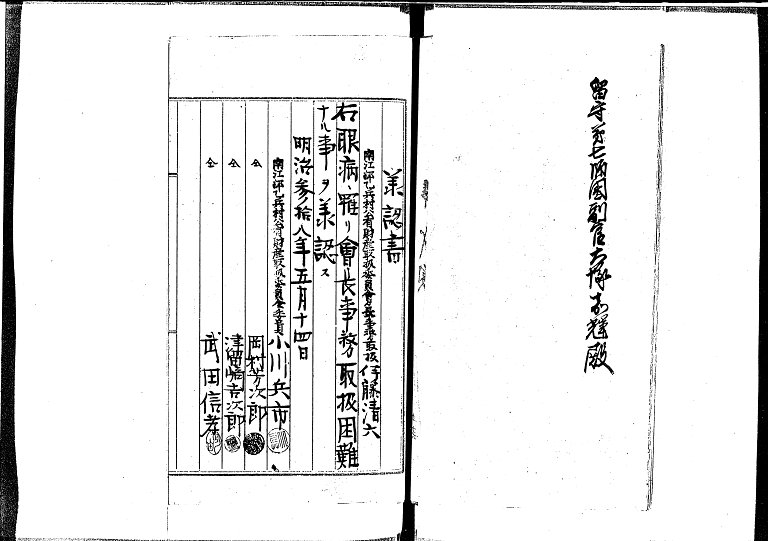 留守第七師團副官大塚尚輝殿
美認書
南江部乙兵村公有財産取扱委員會長事務取扱 伊藤清六
右眼病ニ罹リ會長事務取扱困難
ナル事ヲ美認ス
明治参拾八年五月十四日
南江部乙兵村公有財産取扱委員會委員 小川兵市
仝 岡村芳次郎
仝 津留崎吉次郎
仝 武田信孝